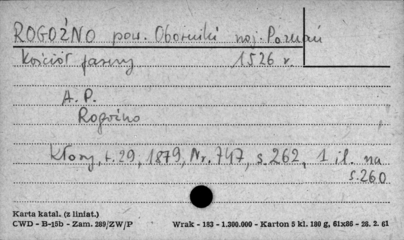 ROGOŹNO pow. Oborniki woj. Poznań
Kościół farny 1526 r.
A. P.
Rogoźno
Kłosy, t. 29, 1879, Nr. 747, s. 262, 1 il. na
s. 260
Karta katal. (z liniat.)
CWD - B-15b - Zam. 289/ZW/P Wrak - 183 - 1.300.000 - Karton 5 kl. 180 g, 61x86 - 28. 2. 61